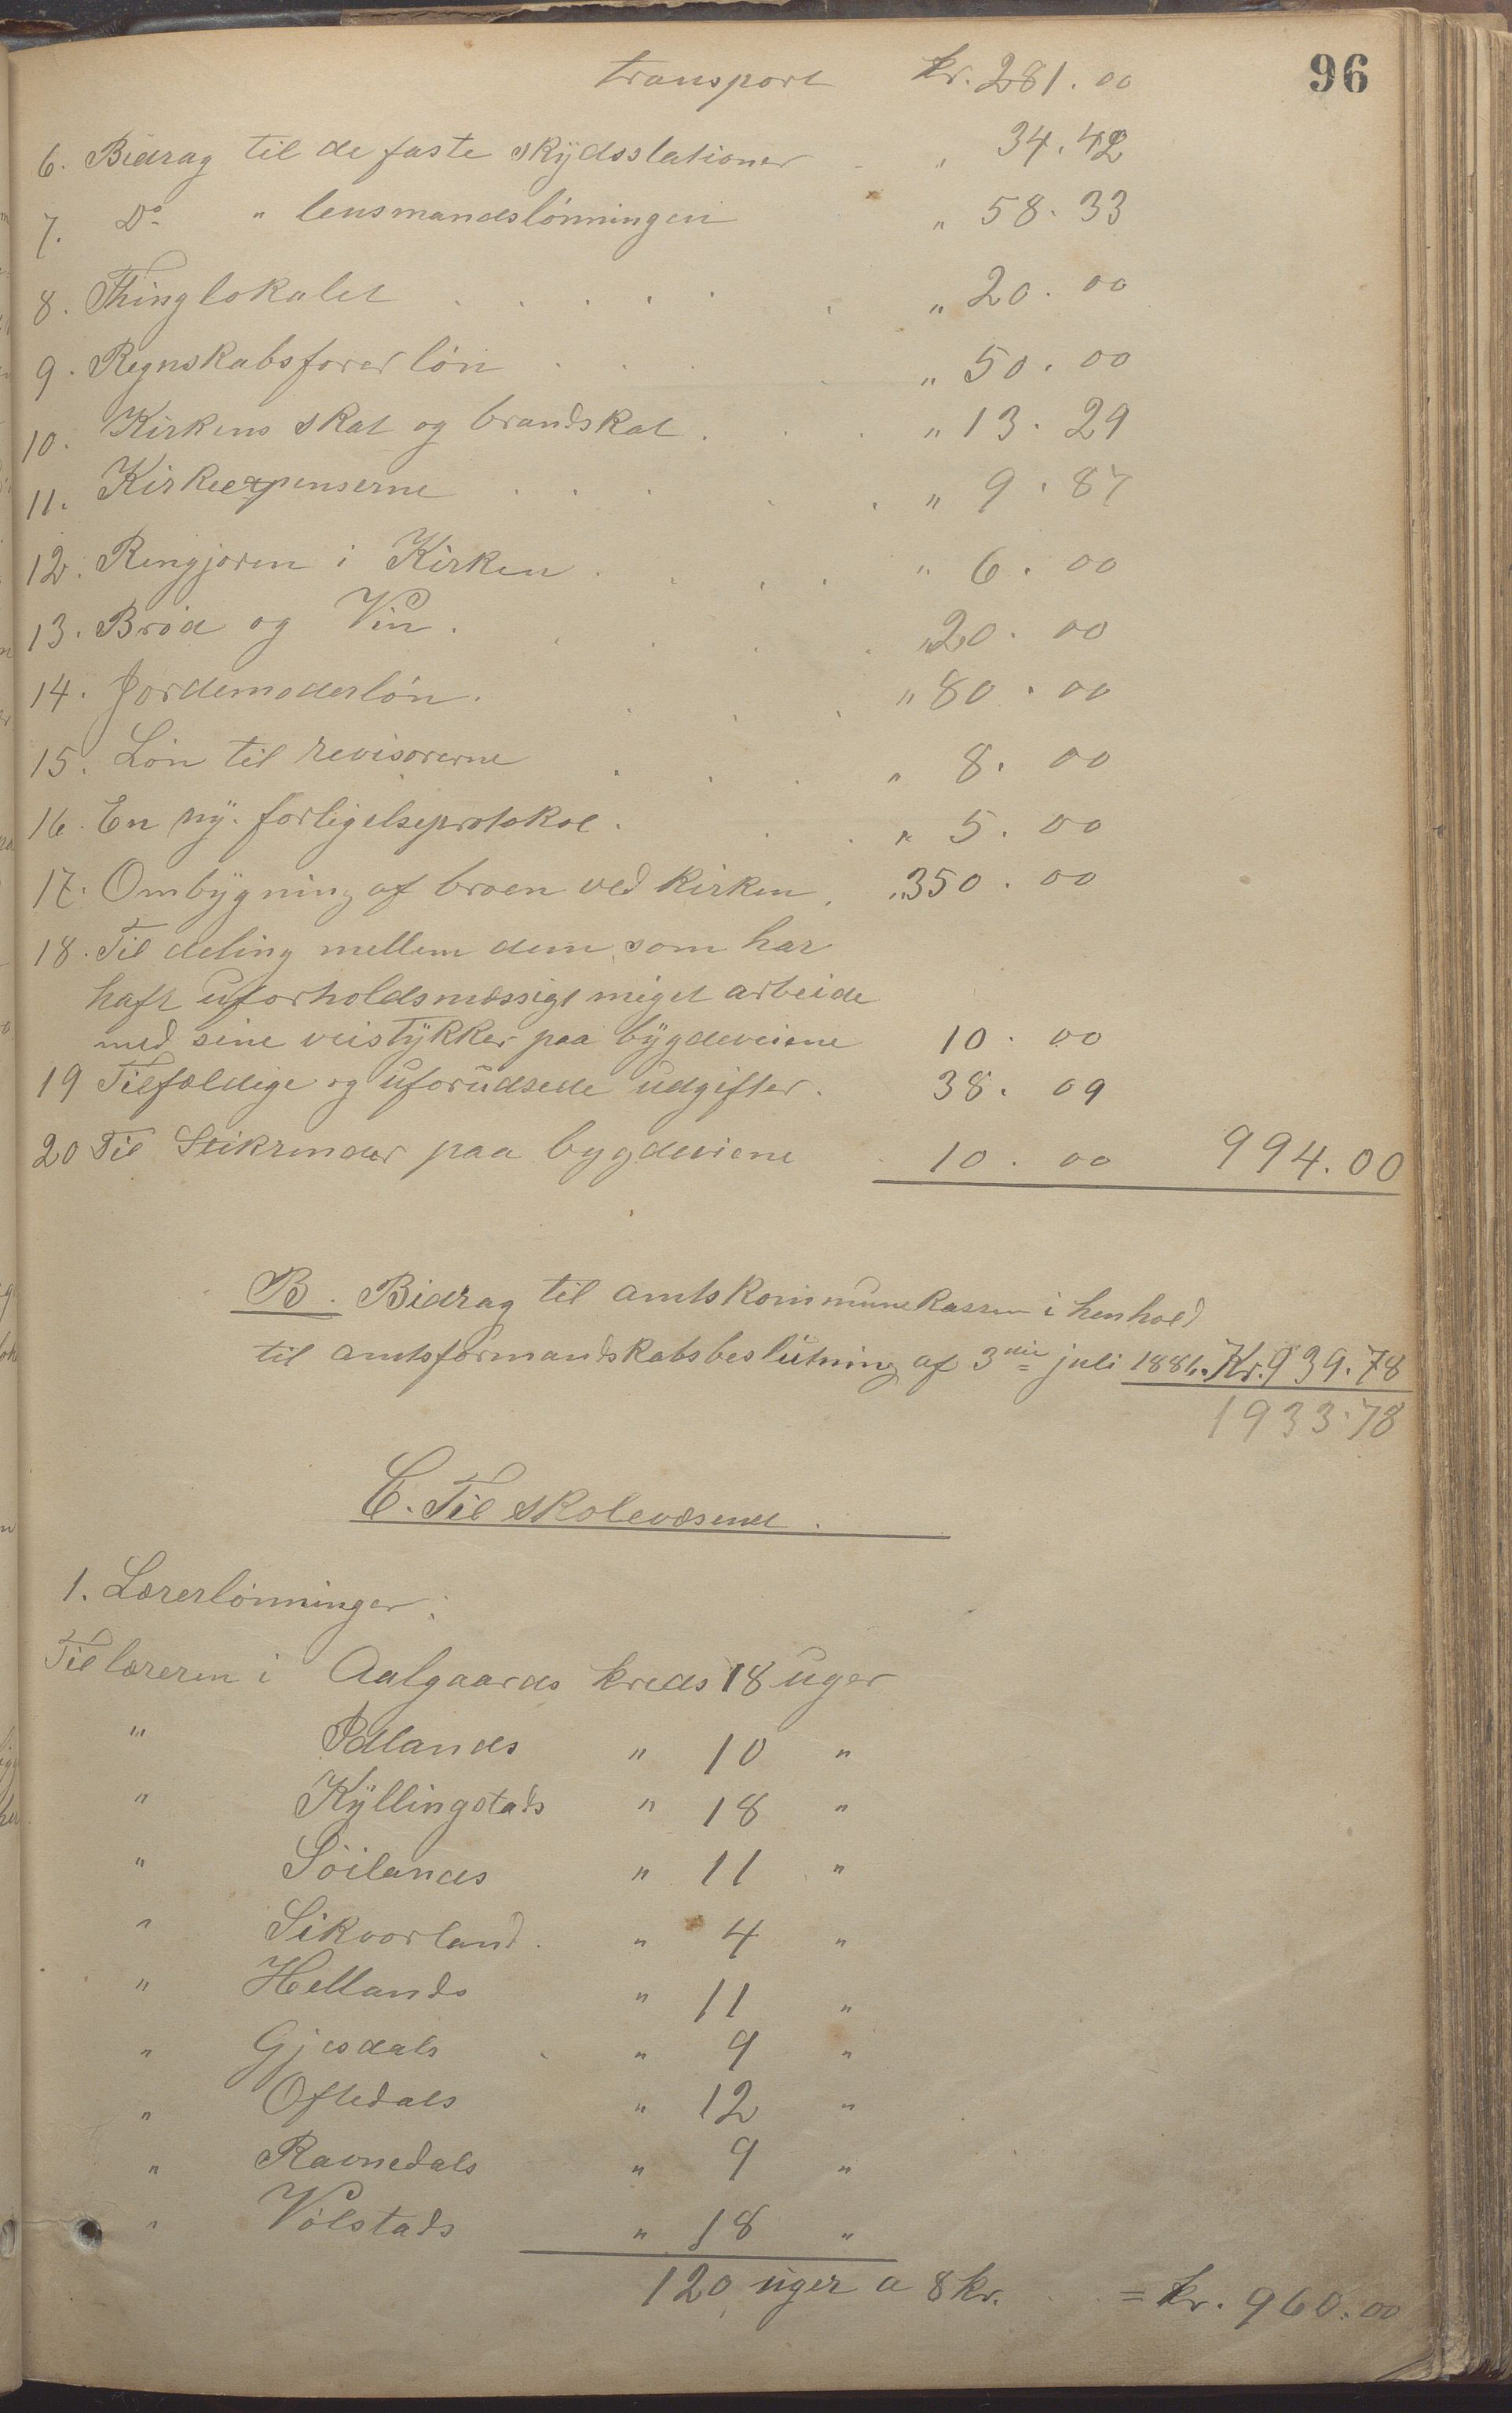 96
transport kr. 281.00
6. Bidrag til de faste skÿdsstationer " 34.42
7. Do " lensmandslønningen " 58.33
8. Thinglokalet . . . . . " 20.00
9. Regnskabsfører løn . . . " 50.00
10. Kirkens skat og brandskat . . . " 13.29
11. Kirkeexpenserne . . . . . " 9.87
12. Rengjøren i Kirken . . . . " 6.00
13. Brød og Vin . . . . . " 20.00
14. Jordemoderløn . . . . " 80.00
15. Løn til revisorerne . . . " 8.00
16. En nÿ forligelseprotokol . . . " 5.00
17. Ombÿgning af broen ved kirken . " 350.00
18. Til deling mellem dem, som har
havt uforholdsmæssigt meget arbeide
med sine veistÿkker paa bÿgdeveiene 10.00
19 Tilfældige og uforudsede udgifter . 38.09
20 Til Stikrender paa bygdeveiene 10.00 994.00
B. Bidrag til amtskommunekassen i henhold
til amtsformandskabsbeslutning af 3die juli 1886. Kr. 939.78
1933.78
C. Til skolevæsenet .
1. Lærerlønninger:
Til læreren i Aalgaards kreds 18 uger
" Idlands " 10 "
" Kÿllingstads " 18 "
" Søilands " 11 "
" Sikvorland . " 4 "
" Hellands " 11 "
" Gjesdals " 9 "
" Oftedals " 12 "
" Ravnedals " 9 "
" Vølstads " 18 "
120 uger a 8 kr. . . = kr. 960.00